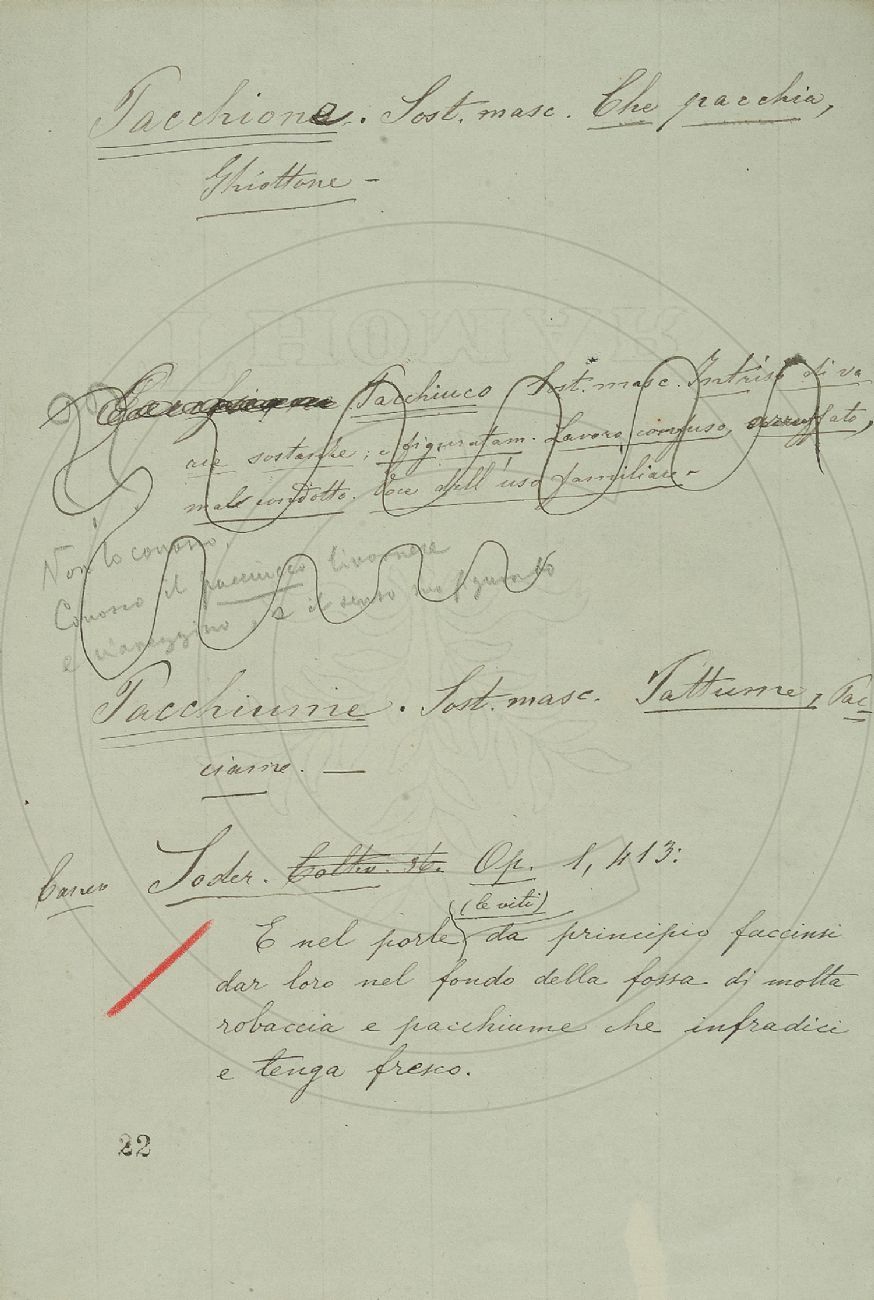 Pacchione. Sost. masc. Che pacchia,
Ghiottone –
Pacchiuco Sost. masc. Intriso di va
rie sostanze; e figuratam. Lavoro confuso, arruffato,
mal condotto. Voce dell'uso familiare –
Non lo conosco.
Conosco il pacciucco livornese
e viareggino, e il senso suo figurato
Pacchiume. Sost. masc. Pattume, Pac-
ciame. —
Soder. Coltiv. Op. 1, 413:
(le viti)
E nel porle da principio faccinsi
dar loro nel fondo della fossa di molta
robaccia e pacchiume che infradici
e tenga fresco.
22